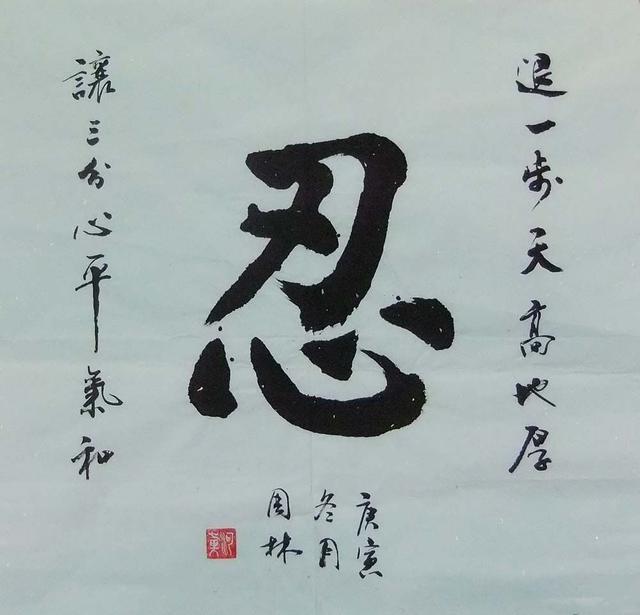 退一步天高地厚
忍
讓三分心平氣和
庚寅
冬月
周林